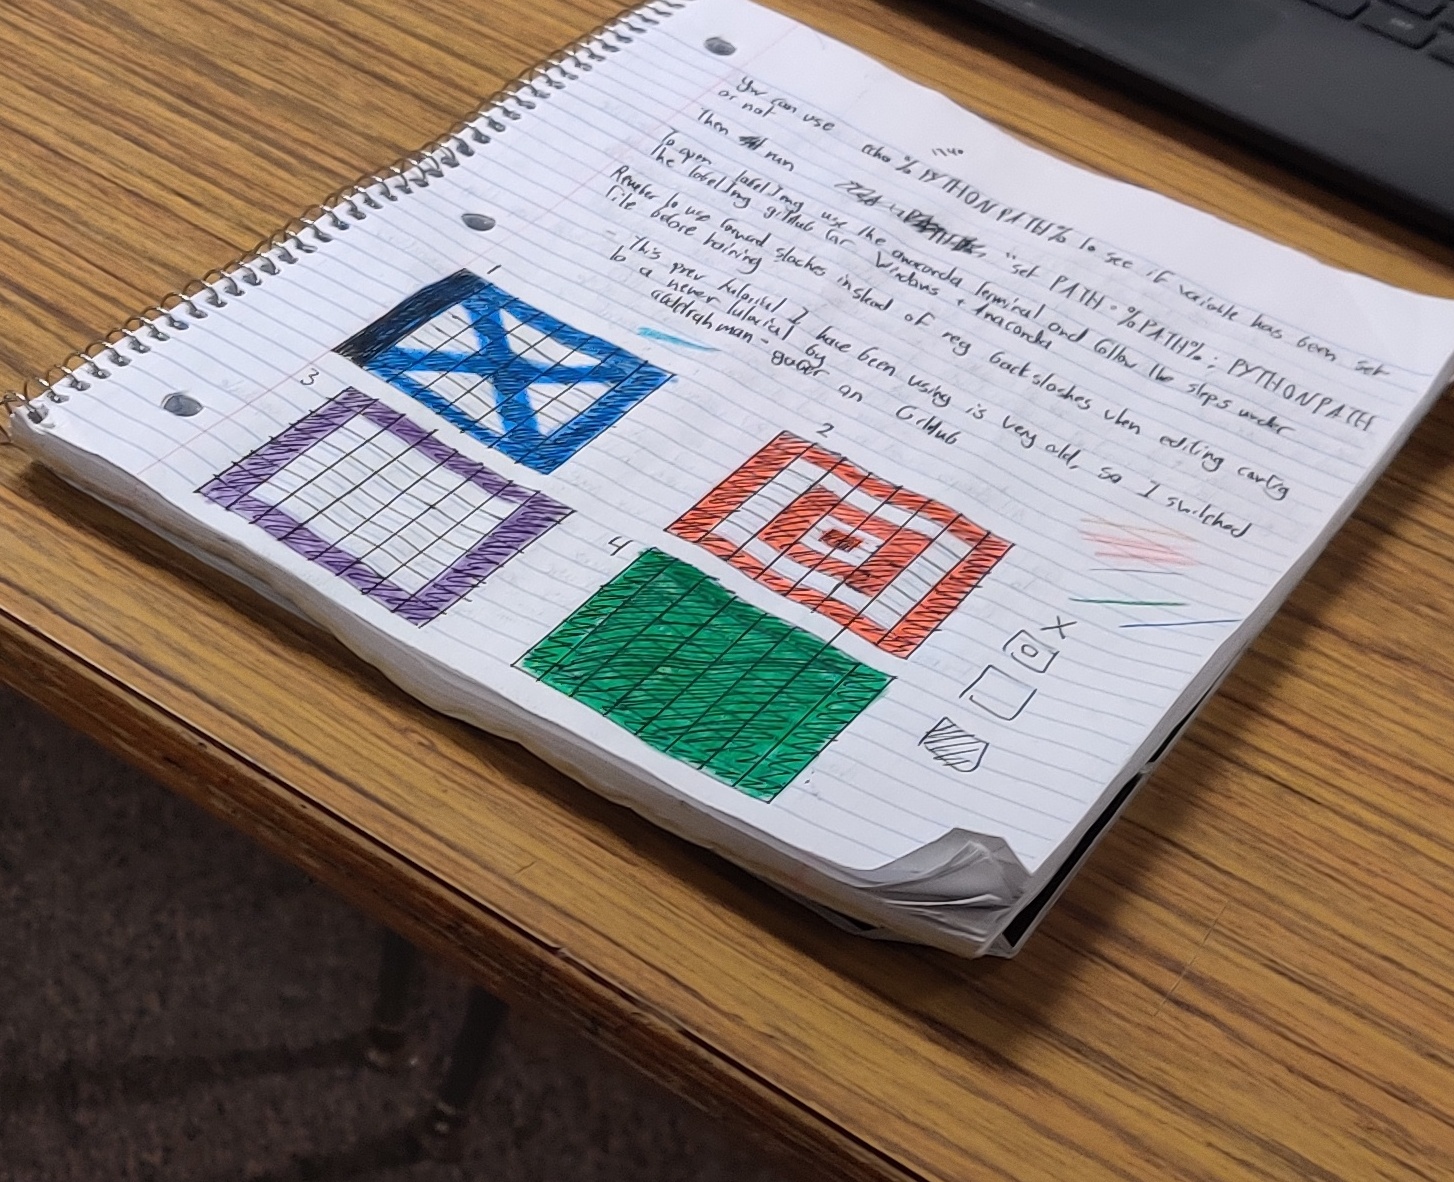 You can use echo %PYTHONPATH% to see if variable has been set
or not
Then run "set PATH=%PATH%; PYTHONPATH
To open labelImg use the anaconda terminal and follow the steps under
the labelImg github for Windows + Anaconda
Remeber to use forward slaches instead of reg backslashes when editing config
file before training
- This prev tutorial I have been using is very old, so I switched
to a newer tutorial by
on GitHub
1
2
3
4
X